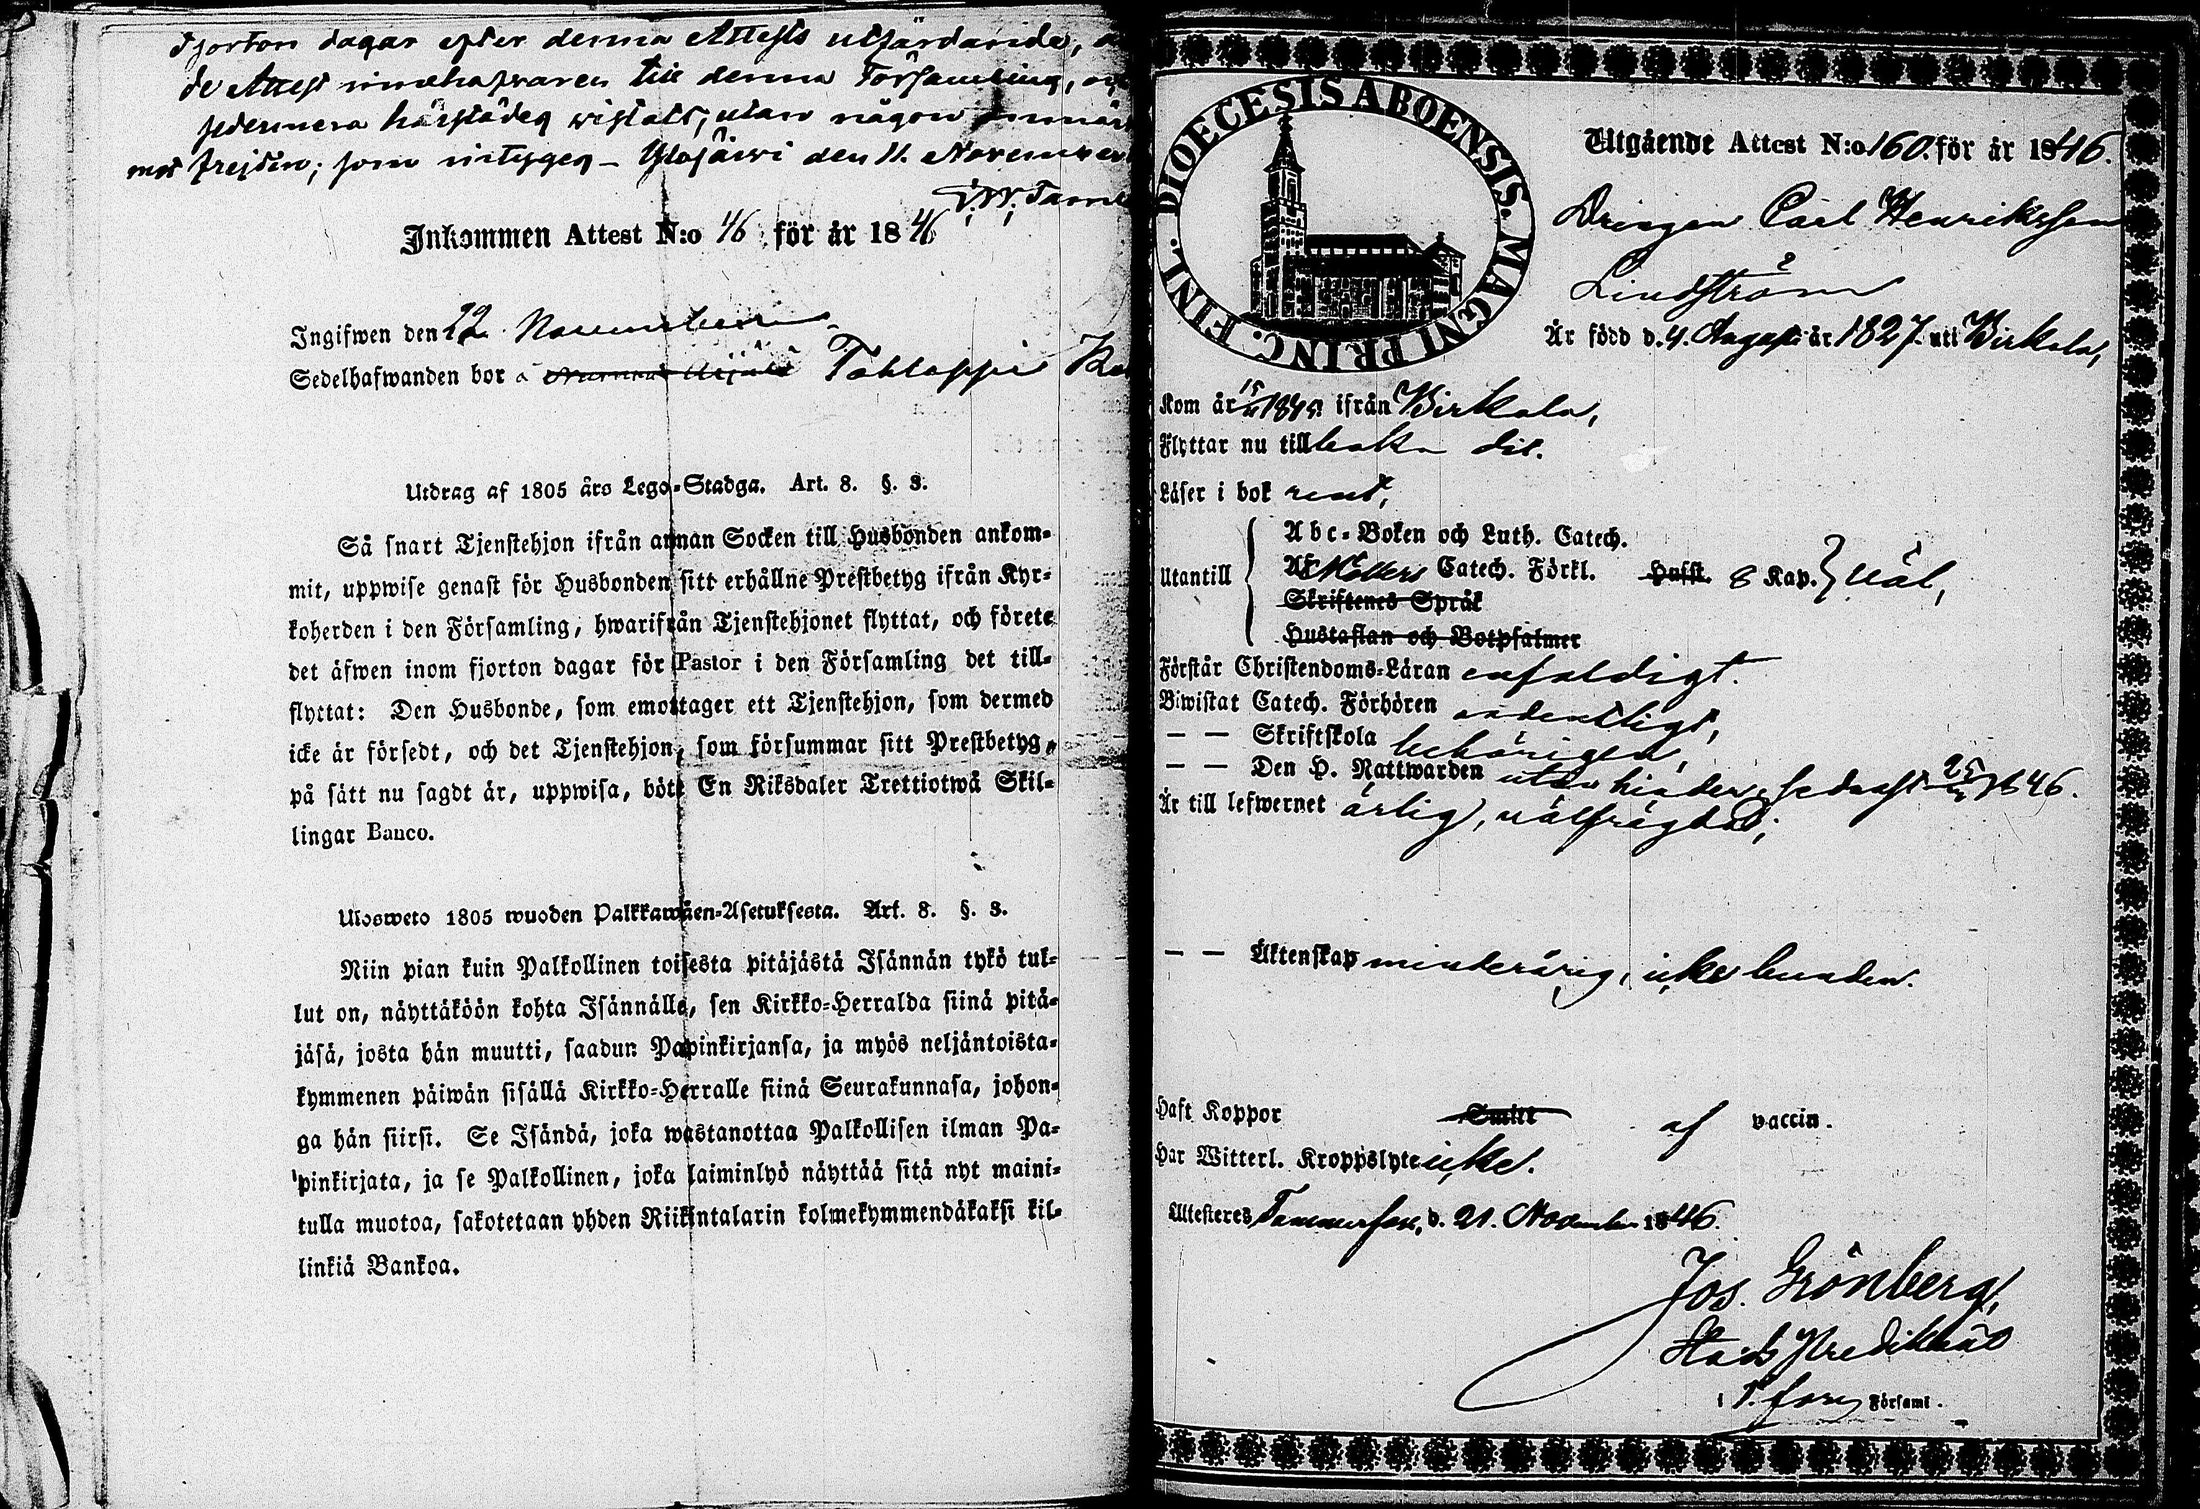 Fjorton dagar efter denna Attests utfärdande,
de Attest innehafvaren till denna Församling,
sedermera härstädes vistats, utan någon
mot frejden; som intygeg – Ylöjärwi den 11. November
Inkommen Attest N:o 46 för år 1846
Ingifwen den 22 November
Sedelhafwanden bor å Tahlappi
Utdrag af 1805 års Lego-Stadga. Art. 8. §. 3.
Så snart Tjenstehjon ifrån annan Socken till Husbonden ankom-
mit, uppwise genast för Husbonden sitt erhållne Prestbetyg ifrån Kyr-
koherden i den Församling, hwarifrån Tjenstehjonet flyttat, och förete
det äfwen inom fjorton dagar för Pastor i den Församling det till-
flyttat: Den Husbonde, som emottager ett Tjenstehjon, som dermed
icke är försedt, och det Tjenstehjon, som försummar sitt Prestbetyg,
på sätt nu sagdt är, uppwisa, böte En Riksdaler Trettiotwå Skil-
lingar Banco.
Ulosweto 1805 wuoden Palkkawäen-Asetuksesta. Art. 8. §. 3.
Niin pian kuin Palkollinen toisesta pitäjästä Isännän tykö tul-
lut on, näyttäköön kohta Isännälle, sen Kirkko-Herralda siinä pitä-
jäsä, josta hän muutti, saadun Papinkirjansa, ja myös neljäntoista-
kymmenen päiwän sisällä Kirkko-Herralle siinä Seurakunnasa, johon-
ga hän siirsi. Se Isändä, joka wastanottaa Palkollisen ilman Pa-
pinkirjata, ja se Palkollinen, joka laiminlyö näyttää sitä nyt maini-
tulla muotoa, sakotetaan yhden Riikintalarin kolmekymmendäkaksi kil-
linkiä Bankoa.
DIOECESIS ABOENSIS. MAGNI PRINC. FINL.
Utgående Attest N:o 160. för år 1846.
Drängen Carl Henriksson
Lindström
Är född d. 4. Augusti år 1827. uti Birkala,
Kom år 15/11 1845 ifrån Birkala,
Flyttar nu tillbaka dit.
Läser i bok rent,
Abc-Boken och Luth. Catech.
Utantill Möllers Catech. Förkl. Hufst. 8 Kap. väl,
Skriftenes Språk
Hustaflan och Botpsalmer
Förstår Christendoms-Läran enfaldigt.
Biwistat Catech. Förhören ordentligt,
— — Skriftskola behörigen,
— — Den H. Nattwarden utan hinder, sednast 1846.
Är till lefwernet ärlig, välfrägdad;
— — Äktenskap minderårig, icke bunden.
Haft Koppor Smitt af vaccin.
Har Witterl. Kroppslyte icke.
Attesteres Tammerfors, d. 21. November 1846.
Jos. Grönberg,
Stads Predikant
i T.fors Församl.